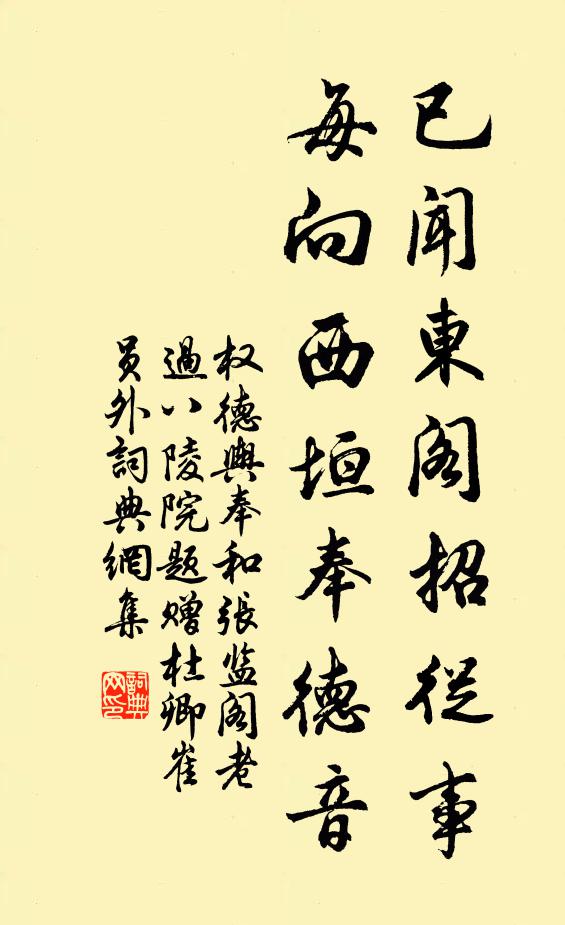 已聞東阁招從事
每向西垣奉德音
权德輿奉和張监阁老
過八陵院题赠杜卿崔
员外詞典網集
詞典
网印